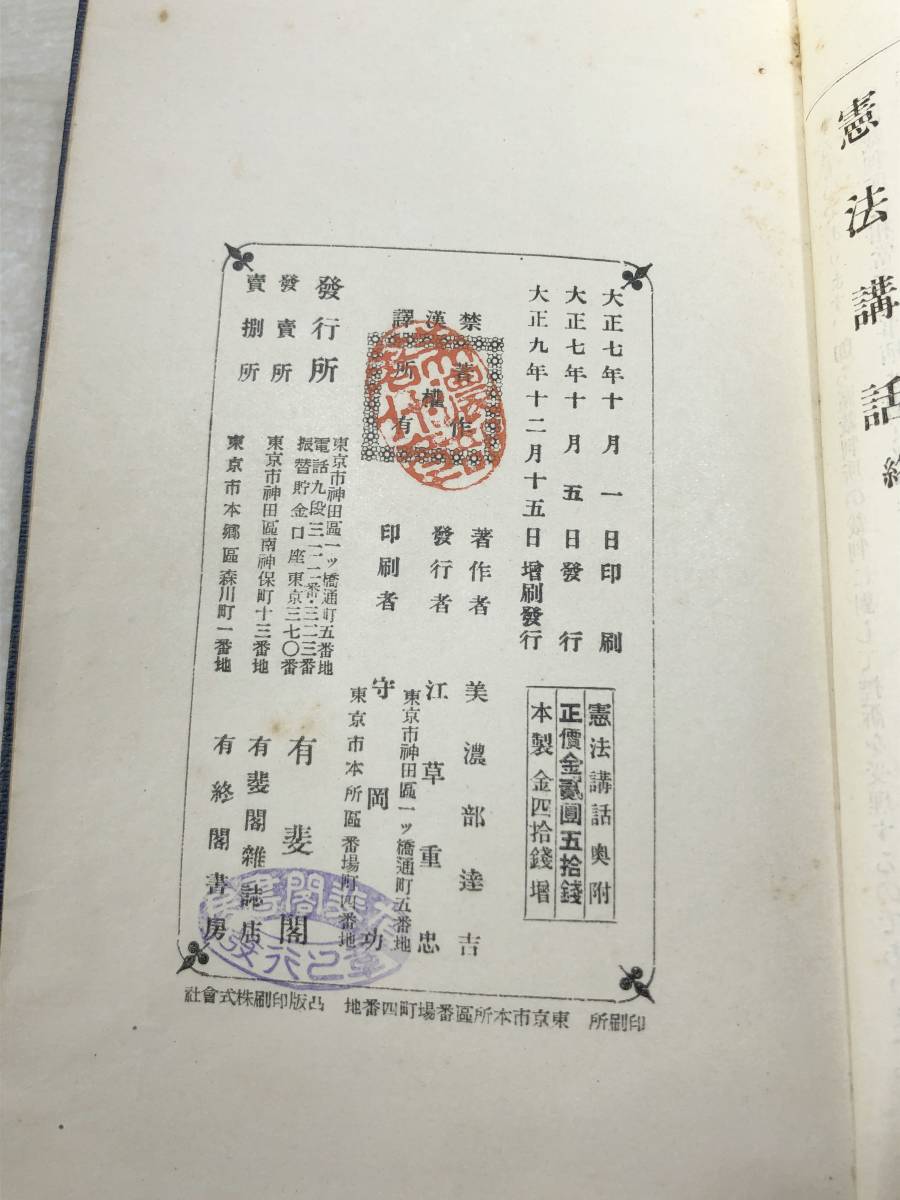 憲法講話 終
大正七年十月一日印刷
大正七年十月五日發行
大正九年十二月十五日增刷發行
憲法講話奧附
正價金貳圓五拾錢
本製金四拾錢增
禁漢譯
著作
權
所有
著作者 美濃部達吉
發行者 江草重忠
東京市神田區一ッ橋通町五番地
印刷者 守岡功
東京市本所區番場町四番地
發行所 有斐閣
東京市神田區一ッ橋通町五番地
電話九段三二二番・三二三番
振替貯金口座東京三七〇番
發賣所 東京市神田區南神保町十三番地 有斐閣雜誌店
賣捌所 東京市本鄉區森川町一番地 有終閣書房
印刷所 東京市本所區番場町四番地 凸版印刷株式會社